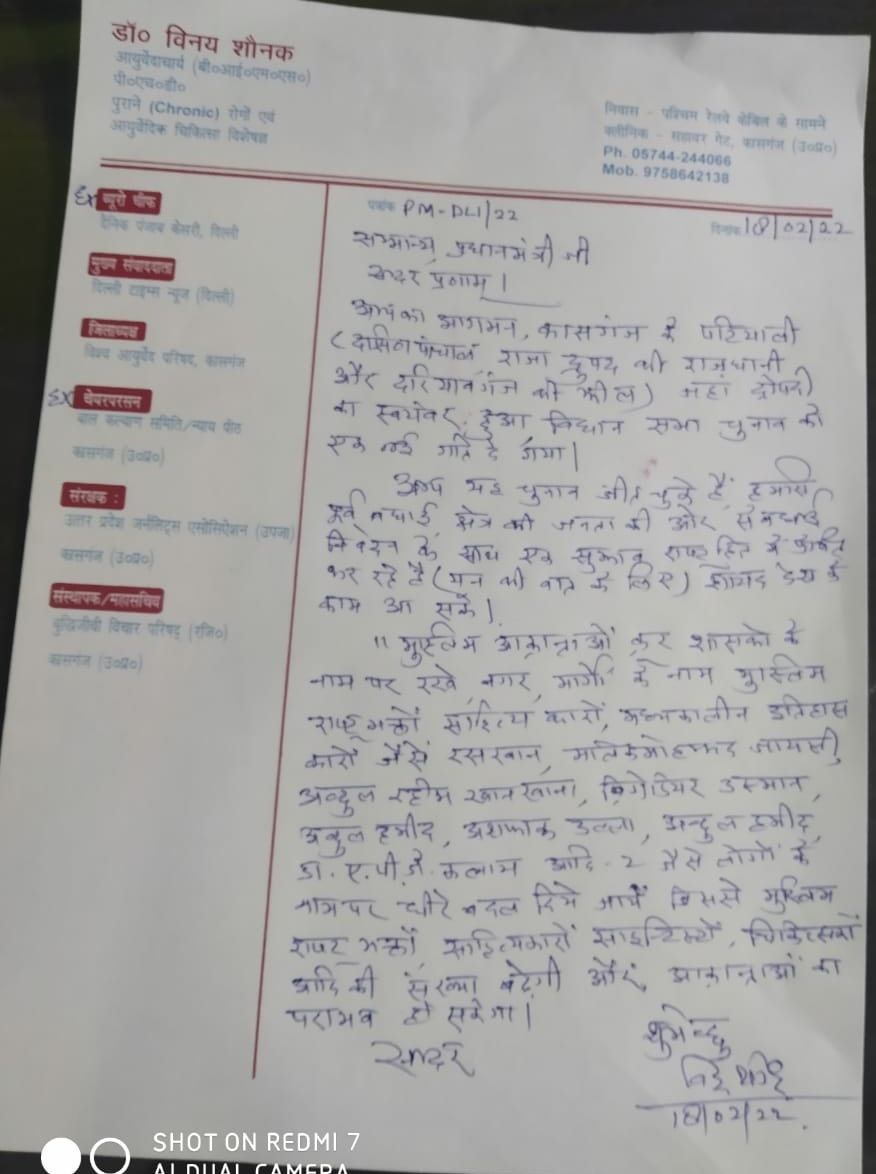 डॉ० विनय शौनक
आयुर्वेदाचार्य (बी०आई०एम०एस०)
पी०एच०डी०
पुराने (Chronic) रोगों एवं
आयुर्वेदिक चिकित्सा विशेषज्ञ
निवास - पश्चिम रेलवे केबिल के सामने
क्लीनिक - सहावर गेट, कासगंज (उ०प्र०)
Ph. 05744-244066
Mob. 9758642138
Ex ब्यूरो चीफ
दैनिक पंजाब केसरी, दिल्ली
मुख्य संवाददाता
दिल्ली टाइम्स न्यूज (दिल्ली)
जिलाध्यक्ष
विश्व आयुर्वेद परिषद, कासगंज
Ex चेयरपरसन
बाल कल्याण समिति/न्याय पीठ
कासगंज (उ०प्र०)
संरक्षक :
उत्तर प्रदेश जर्नलिट्स एसोसिऐशन (उपजा)
कासगंज (उ०प्र०)
संस्थापक/महासचिव
बुद्धिजीवी विचार परिषद् (रजि०)
कासगंज (उ०प्र०)
पत्रांक PM-DLI/22
दिनांक 18/02/22
सम्मान्य प्रधानमंत्री जी
सादर प्रणाम्।
आपका आगमन, कासगंज के पटियाली
(दक्षिण पंचाल राजा द्रुपद की राजधानी
और दरियावगंज की झील) जहां द्रोपदी
का स्वयंवर हुआ, विधान सभा चुनाव को
एक नई गति दे गया।
आप यह चुनाव जीत चुके हैं, हमारी
पूर्व बधाई क्षेत्र की जनता की ओर से बधाई
निवेदन के साथ एक सुझाव राष्ट्र हित में
कर रहे हैं (मन की बात के लिए) शायद देश के
काम आ सके।
"मुस्लिम आक्रान्ताओं क्रूर शासकों के
नाम पर रखे नगर, मार्गों के नाम मुस्लिम
राष्ट्र भक्तों साहित्य कारों, मध्यकालीन इतिहास
कारों जैसे रसखान, मलिक मोहम्मद जायसी,
अब्दुल रहीम खानखाना, ब्रिगेडियर उस्मान,
अब्दुल हमीद, अशफाक उल्ला, अब्दुल हमीद,
डा. ए.पी.जे. कलाम आदि-2 जैसे लोगों के
नाम पर धीरे बदल दिये जायें जिससे मुस्लिम
राष्ट्र भक्तों, साहित्यकारों साइन्टिस्टों, चिकित्सकों
आदि की संख्या बढ़ेगी और, आक्रान्ताओं का
पराभव हो सकेगा।
सादर
शुभेच्छु
18/02/22.
SHOT ON REDMI 7
AI DUAL CAMERA